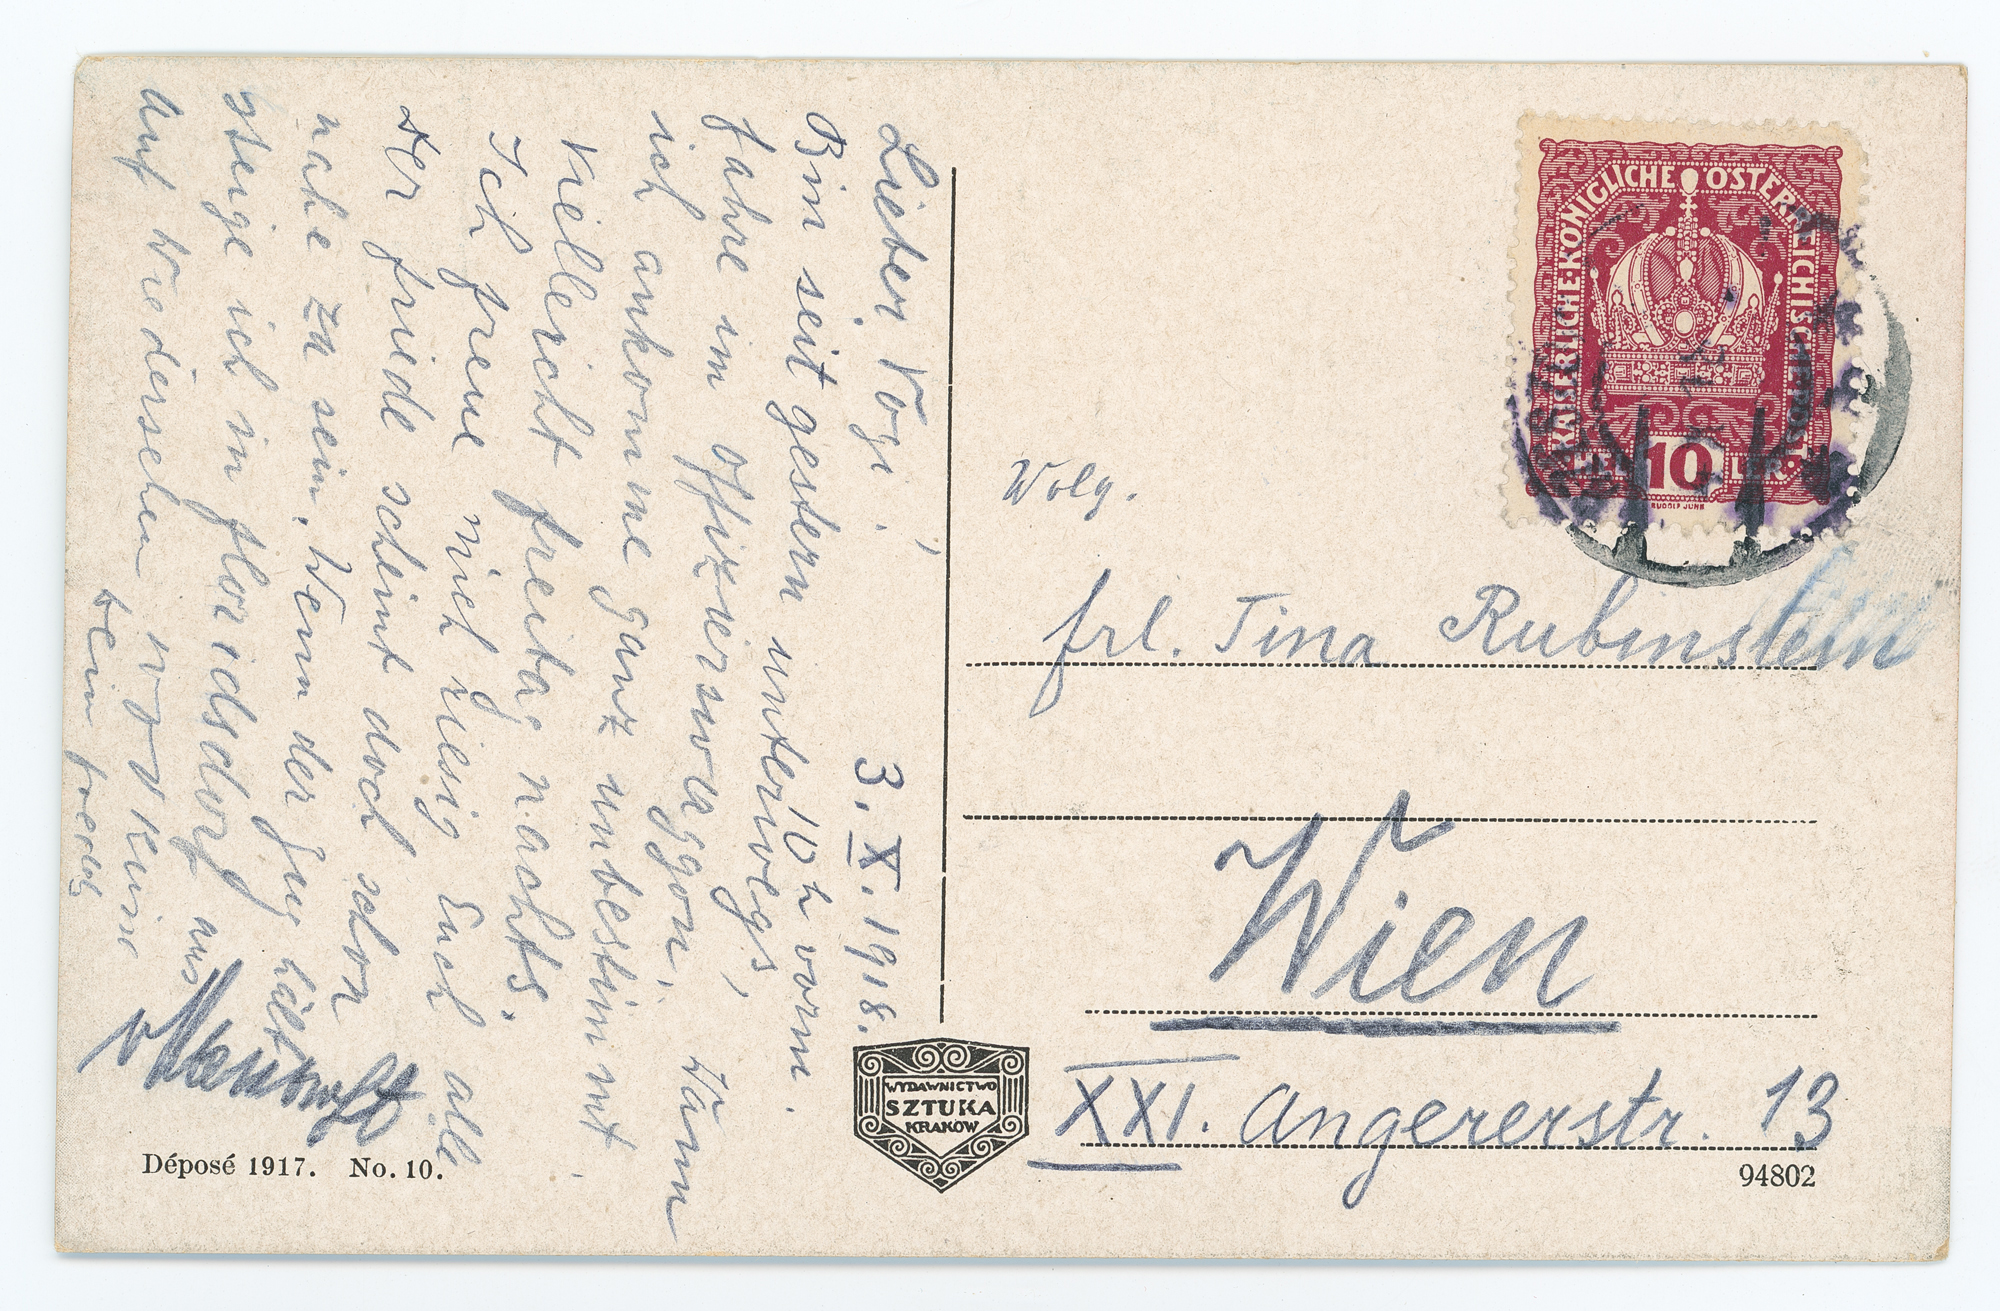 3. X. 1918.
Lieber Vogi!
Bin seit gestern 10h vorm.
unterwegs,
fahre im Offizierswaggon. Wann
ich ankomme ganz unbestimmt.
Vielleicht freitag nachts.
Ich freue mich riesig Euch alle
Der friede scheint doch schon
nahe zu sein. Wenn der Zug hält
steige ich in floridsdorf aus
Auf Wiedersehen
dein
Wolg.
frl. Tina Rubinstein
Wien
XXI. Angererstr. 13
KAISERLICHE·KÖNIGLICHE ÖSTERREICHISCHE POST
HEL 10 LER
RUDOLF JUNK
WYDAWNICTWO
SZTUKA
KRAKÓW
Déposé 1917. No. 10.
94802